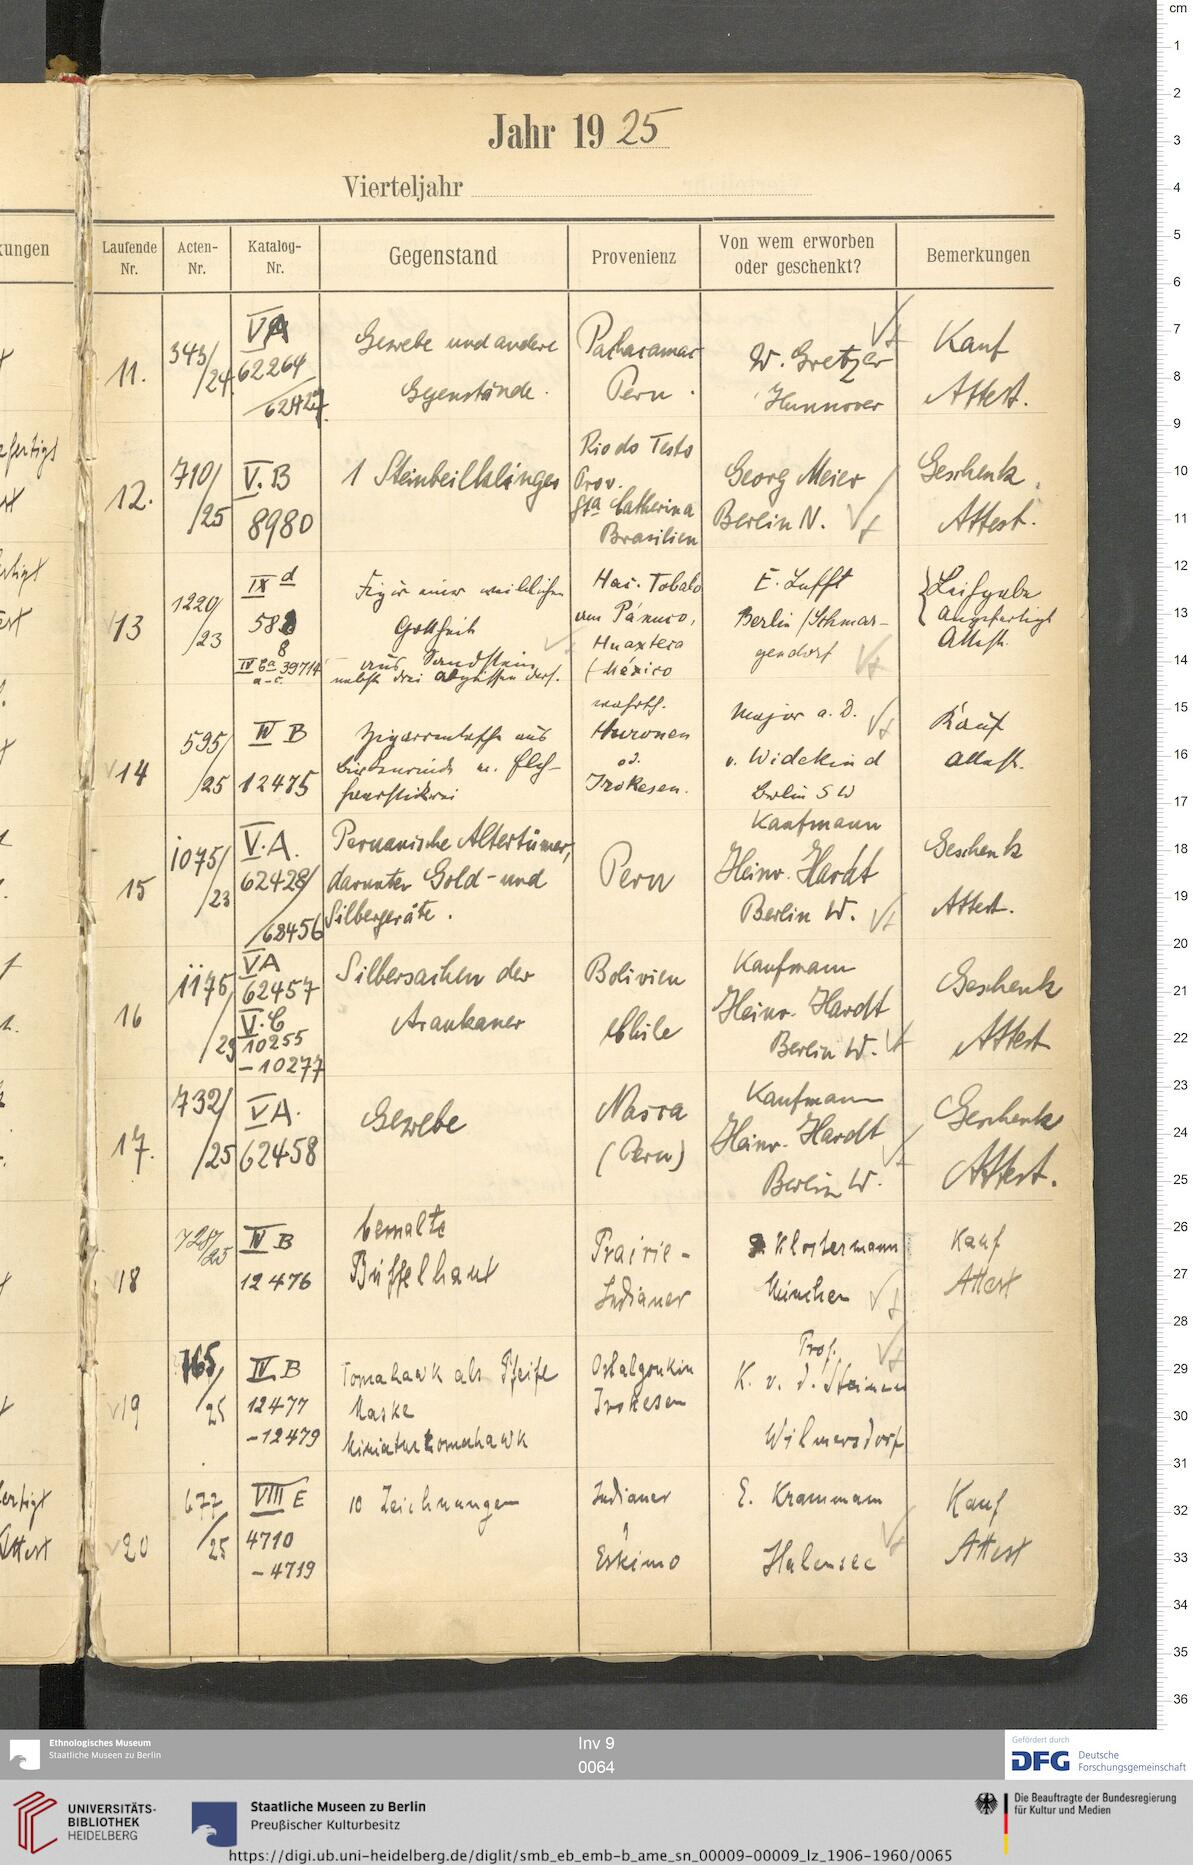 Jahr 19 25
Vierteljahr
kungen
Laufende Nr.
Acten-Nr.
Katalog-Nr.
Gegenstand
Provenienz
Von wem erworben oder geschenkt?
Bemerkungen
11.
343/24.
VA
62264/62427.
Gewebe und andere
Gegenstände.
Pachacamac
Peru.
W. Gretzer
Hannover
Kauf
Attest.
12.
710/25
V.B
8980
1 Steinbeilklinge
Rio do Testo
Prov.
Sta Catherina
Brasilien
Georg Meier
Berlin N.
Geschenk.
Attest.
13
1220/23
IX d
588
8
IV Ca 39714
a-c
Figur einer weiblichen
Gottheit
aus Sandstein
nebst drei Abgüssen ders.
Hac. Tobalo
am Pánuco,
Huaxteca
(México
E. Lufft
Berlin/Schmar-
gendorf
Leihgabe
angefertigt
Attest.
14
595/25
IV B
12475
Zigarrentasche aus
Birkenrinde m. Elch-
haarstickerei
wahrsch.
Huronen
od.
Irokesen.
Major a. D.
v. Widekind
Berlin SW
Kauf
Attest.
15
1075/23
V.A.
62428/
/62456
Peruanische Altertümer,
darunter Gold- und
Silbergeräte.
Peru
Kaufmann
Heinr. Hardt
Berlin W.
Geschenk
Attest.
16
1175/23
VA
62457
V.C
10255
-10277
Silbersachen der
Araukaner
Bolivien
Chile
Kaufmann
Heinr. Hardt
Berlin W.
Geschenk
Attest
17.
732/25
VA.
62458
Gewebe
Nasca
(Peru)
Kaufmann
Heinr. Hardt
Berlin W.
Geschenk
Attest.
18
728/25
IV B
12476
bemalte
Büffelhaut
Prairie-
Indianer
Klostermann
München
Kauf
Attest
19
765/25
IV B
12477
-12479
Tomahawk als Pfeife
Maske
Miniaturtomahawk
Ostalgonkin
Irokesen
Prof.
K. v. d. Steinen
Wilmersdorf
20
677/25
VIII E
4710
-4719
10 Zeichnungen
Indianer
Eskimo
E. Krammann
Halensee
Kauf
Attest
cm
1
2
3
4
5
6
7
8
9
10
11
12
13
14
15
16
17
18
19
20
21
22
23
24
25
26
27
28
29
30
31
32
33
34
35
36
Ethnologisches Museum
Staatliche Museen zu Berlin
Inv 9
0064
Gefördert durch
DFG Deutsche
Forschungsgemeinschaft
UNIVERSITÄTS-
BIBLIOTHEK
HEIDELBERG
Staatliche Museen zu Berlin
Preußischer Kulturbesitz
Die Beauftragte der Bundesregierung
für Kultur und Medien
https://digi.ub.uni-heidelberg.de/diglit/smb_eb_emb-b_ame_sn_00009-00009_lz_1906-1960/0065